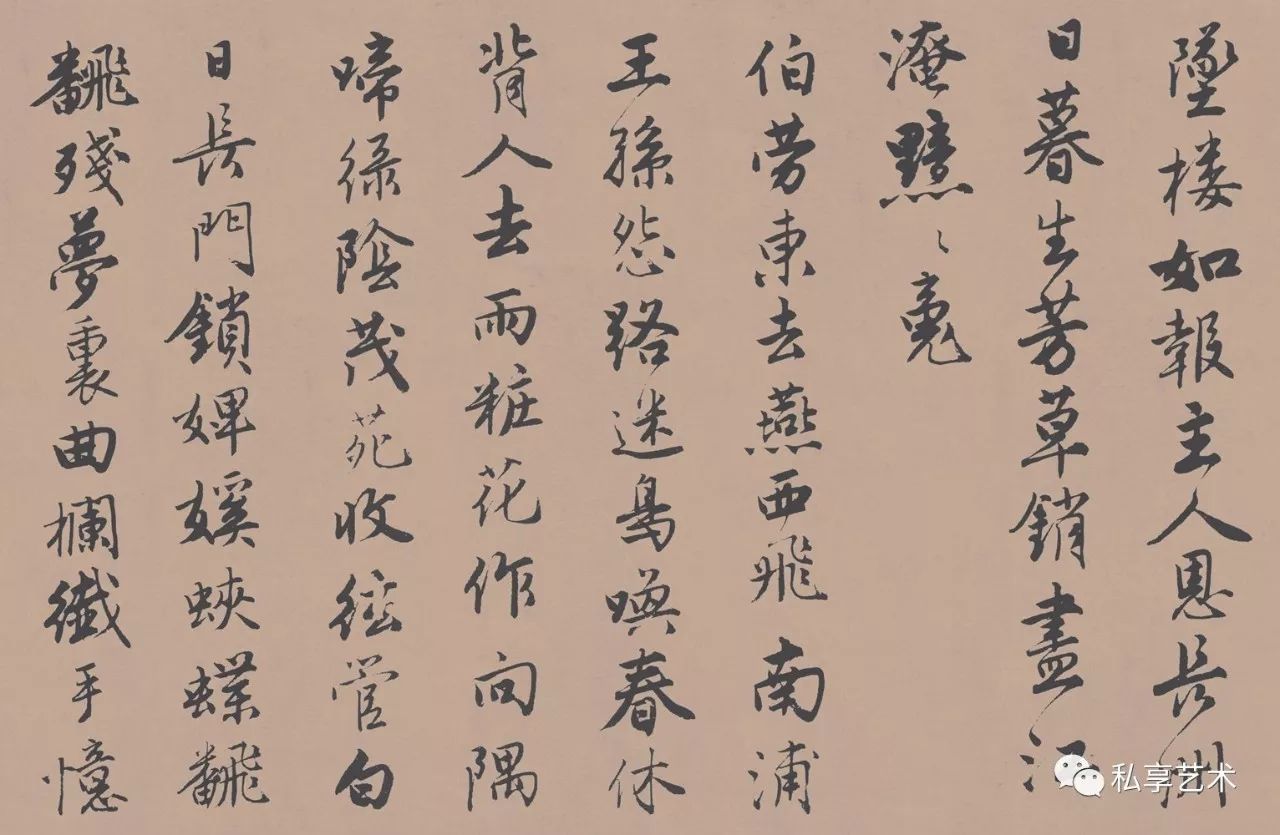 墜樓如報主人恩長洲
日暮生芳草銷盡江
淹黯〻魂
伯勞東去燕西飛南浦
王孫怨路迷鳥喚春休
背人去雨粧花作向隅
啼綠陰茂苑收弦管白
日長門鎖婢㜎蛺蝶飜
飜殘夢裏曲欄纖手憶
私享艺术